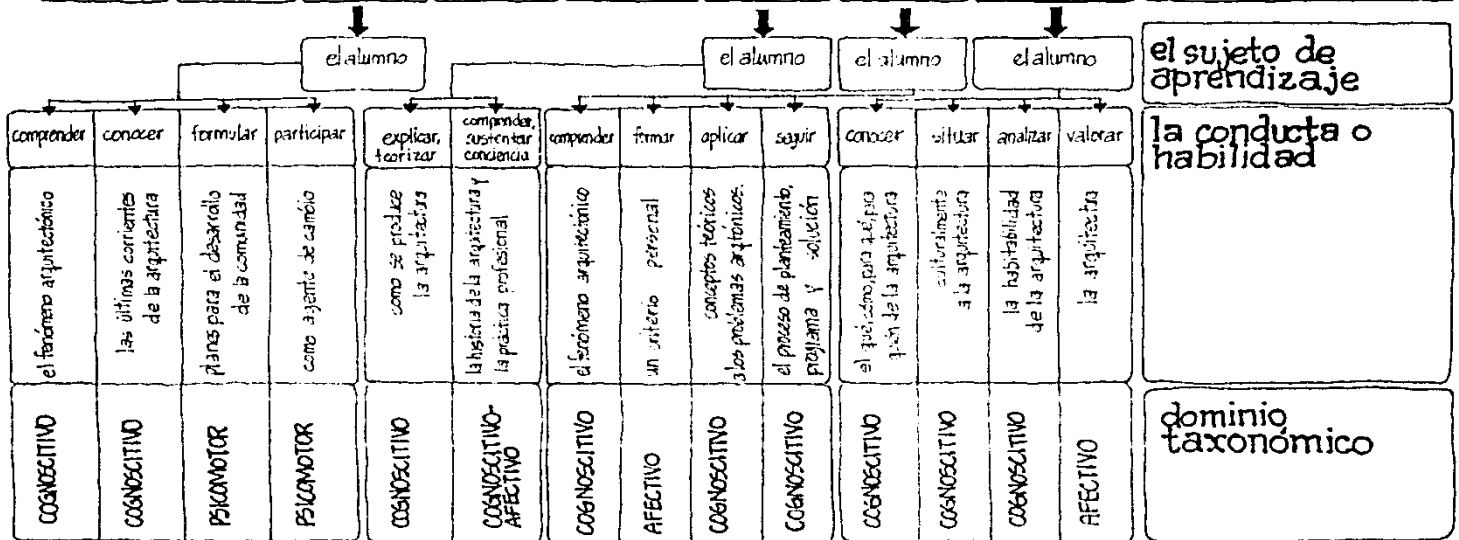 el alumno
el alumno
el alumno
el alumno
el sujeto de
aprendizaje
comprender
conocer
formular
participar
explicar,
teorizar
comprender,
sustentar
conciencia
comprender
formar
aplicar
seguir
conocer
situar
analizar
valorar
la conducta o
habilidad
el fenómeno arquitectónico
las últimas corrientes
de la arquitectura
planes para el desarrollo
de la comunidad
como agente de cambio
como se produce
la arquitectura
la historia de la arquitectura y
la práctica profesional
el fenómeno arquitectónico
un criterio personal
conceptos teóricos
a los problemas arqtónicos.
el proceso de planteamiento,
programa y solución
el qué, cómo, para qué, por
quién de la arquitectura
culturalmente
a la arquitectura
la habitabilidad
de la arquitectura
la arquitectura
COGNOSCITIVO
COGNOSCITIVO
PSICOMOTOR
PSICOMOTOR
COGNOSCITIVO
COGNOSCITIVO-
AFECTIVO
COGNOSCITIVO
AFECTIVO
COGNOSCITIVO
COGNOSCITIVO
COGNOSCITIVO
COGNOSCITIVO
COGNOSCITIVO
AFECTIVO
dominio
taxonómico